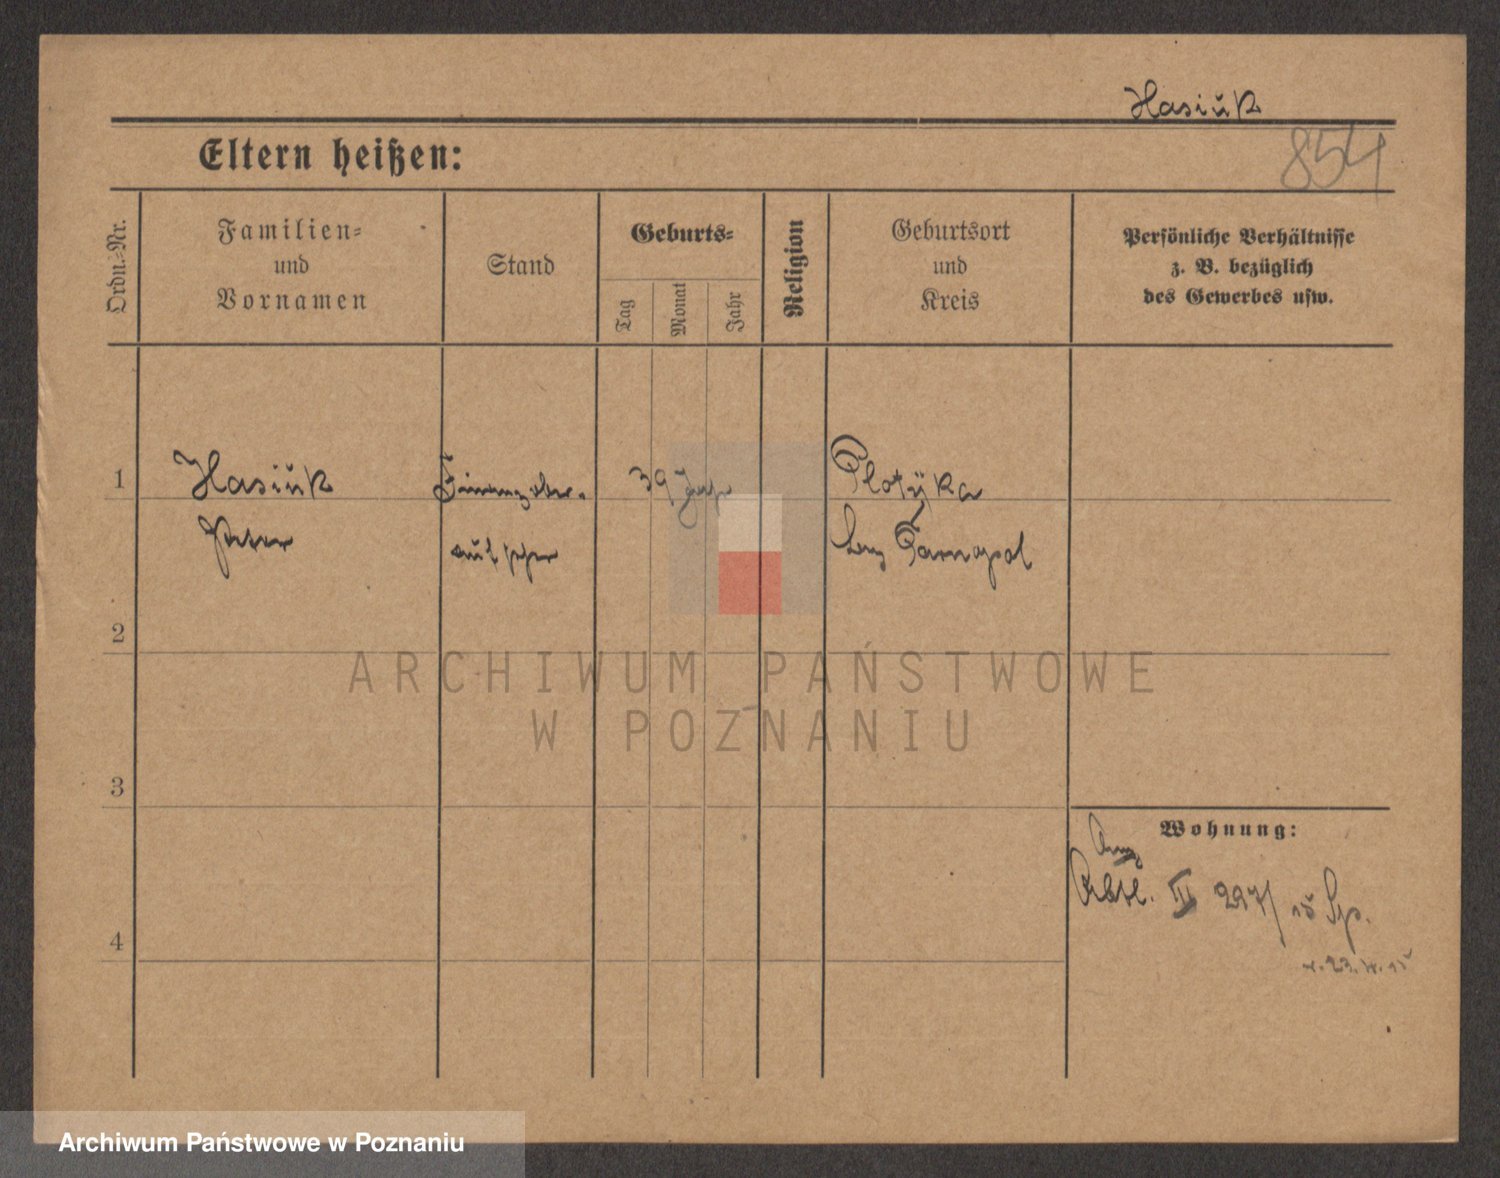 Hasiuk
854
Eltern heißen:
Ordn.-Nr.
Familien-
und
Vornamen
Stand
Geburts-
Tag
Monat
Jahr
Religion
Geburtsort
und
Kreis
Persönliche Verhältnisse
z. B. bezüglich
des Gewerbes usw.
1
Hasiuk
Finanzober-
39 Jahr
Plotyka
Peter
aufseher
bez Tarnopol
2
3
4
Wohnung:
Abtl. III 297/15
23. IV. 15
ARCHIWUM PAŃSTWOWE
W POZNANIU
Archiwum Państwowe w Poznaniu